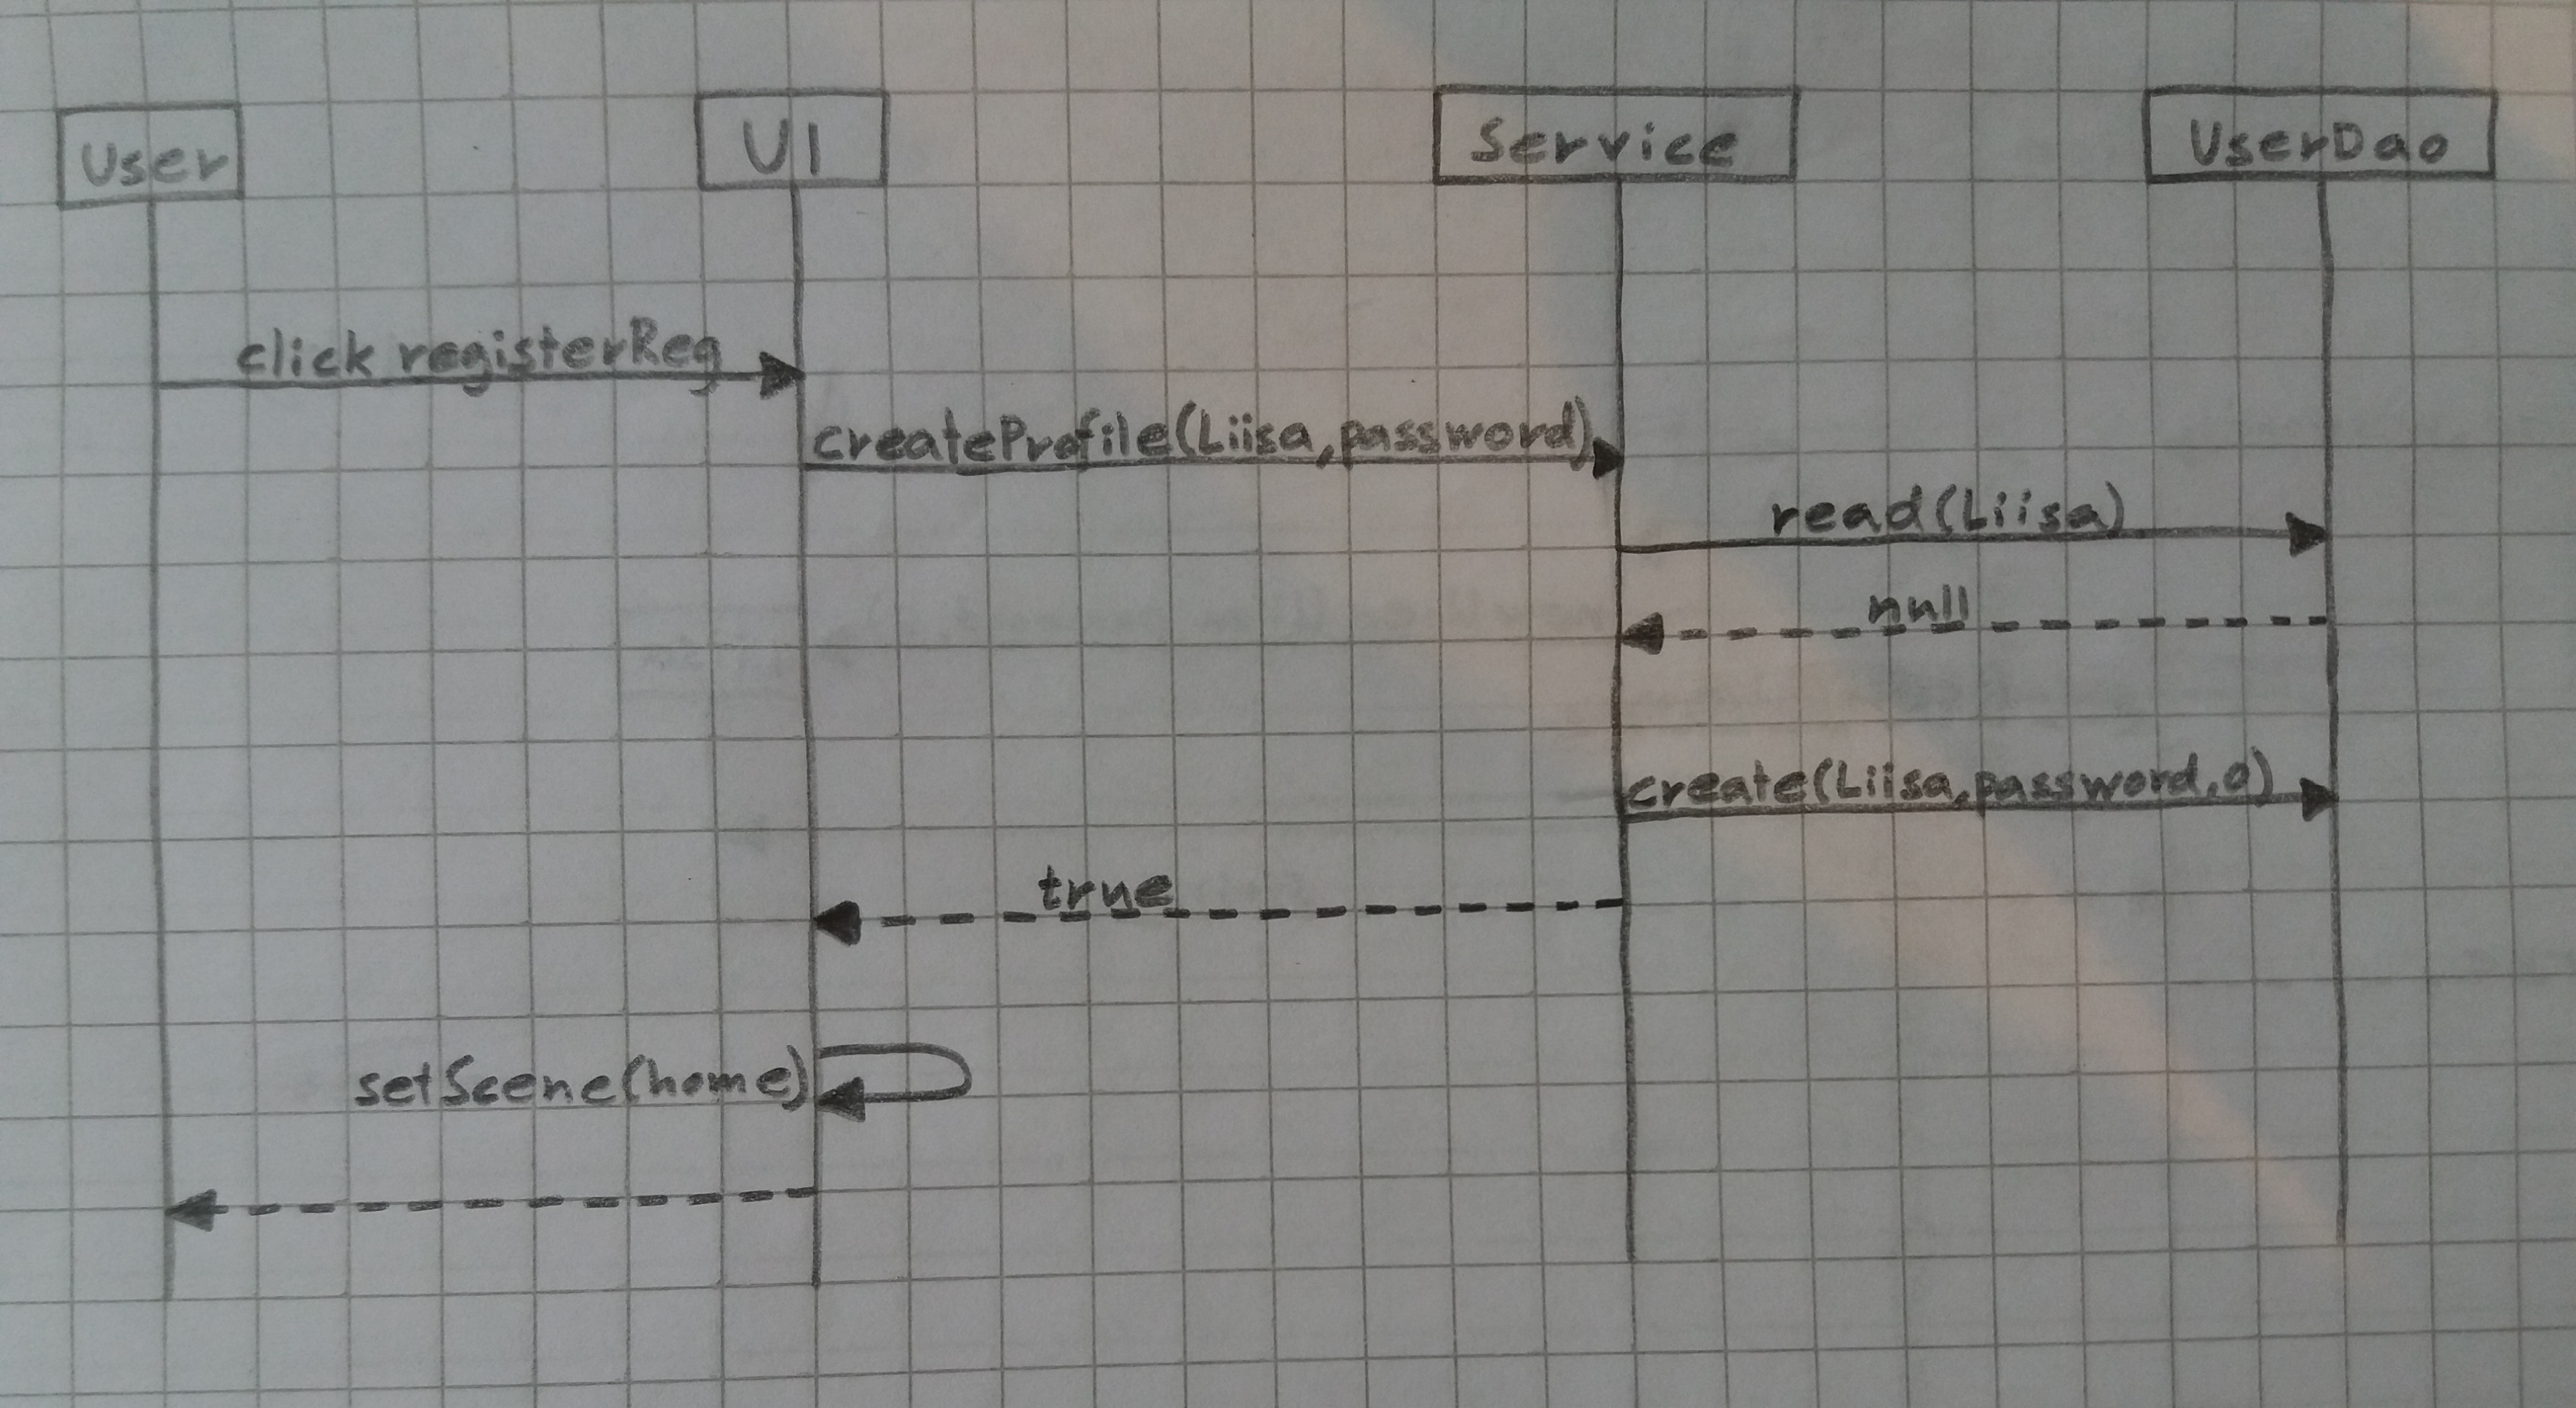 User
UI
Service
UserDao
click registerReg
createProfile(Liisa,password)
read(Liisa)
null
create(Liisa,password,0)
true
setScene(home)